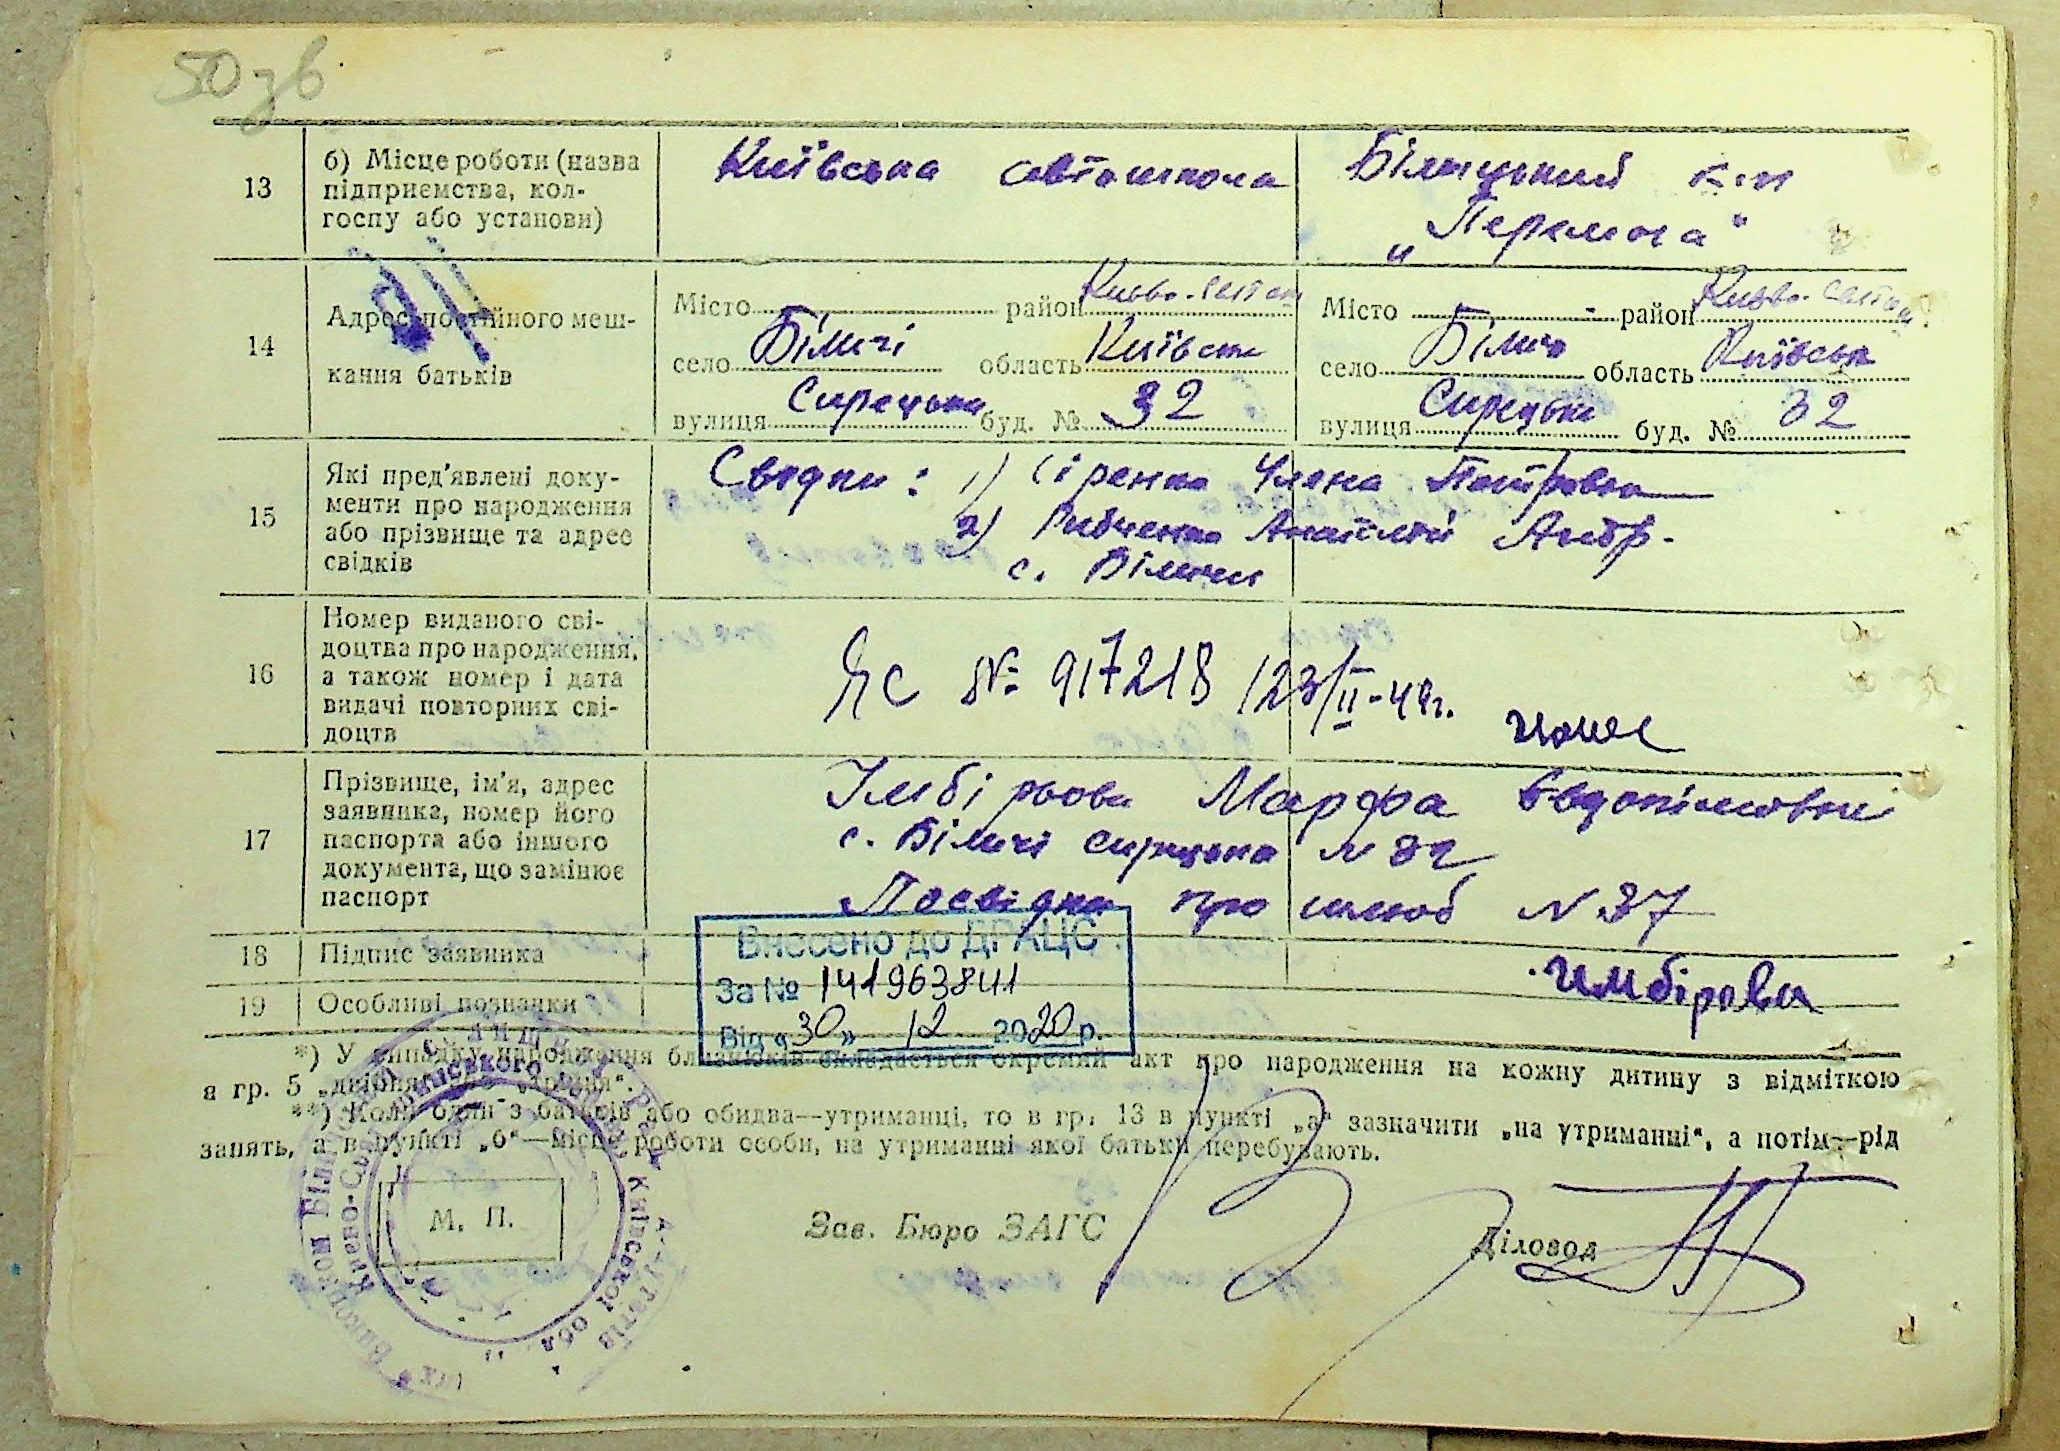 50 зв
13
б) Місце роботи (назва
підприємства, кол-
госпу або установи)
Київська автошкола
Більицький к-п
„Перемога"
14
Адрес постійного меш-
кання батьків
Місто район Києво-Свят
село Біличі область Київськ
вулиця Сирецька буд. № 32
Місто - район Києво-Свят
село Біличі область Київськ
вулиця Сирецька буд. № 32
15
Які пред'явлені доку-
менти про народження
або прізвище та адрес
свідків
Свідки: 1) Сіренко Улена Петровна
2) Рибченко Анатолій Андр.
с. Біличи
16
Номер виданого сві-
доцтва про народження,
а також номер і дата
видачі повторних сві-
доцтв
ЯС № 917218 /23/II-44г.
17
Прізвище, ім'я, адрес
заявника, номер його
паспорта або іншого
документа, що замінює
паспорт
Імбірьова Марфа Евдокімовна
с. Біличі Сирецька № 32
Посвідка про шлюб № 37
18
Підпис заявника
Имбірова
19
Особливі познанки
Внесено до ДРАЦС
За № 1419638411
Від «30» 12 2020 р.
*) У випадку народження близнюків складається окремий акт про народження на кожну дитину з відміткою
в гр. 5 „двійня" або „трійня".
**) Коли один з батьків або обидва—утриманці, то в гр. 13 в пункті „а" зазначити „на утриманні", а потім—рід
занять, а в пункті „б"—місце роботи особи, на утриманні якої батьки перебувають.
М. П.
Зав. Бюро ЗАГС
Діловод